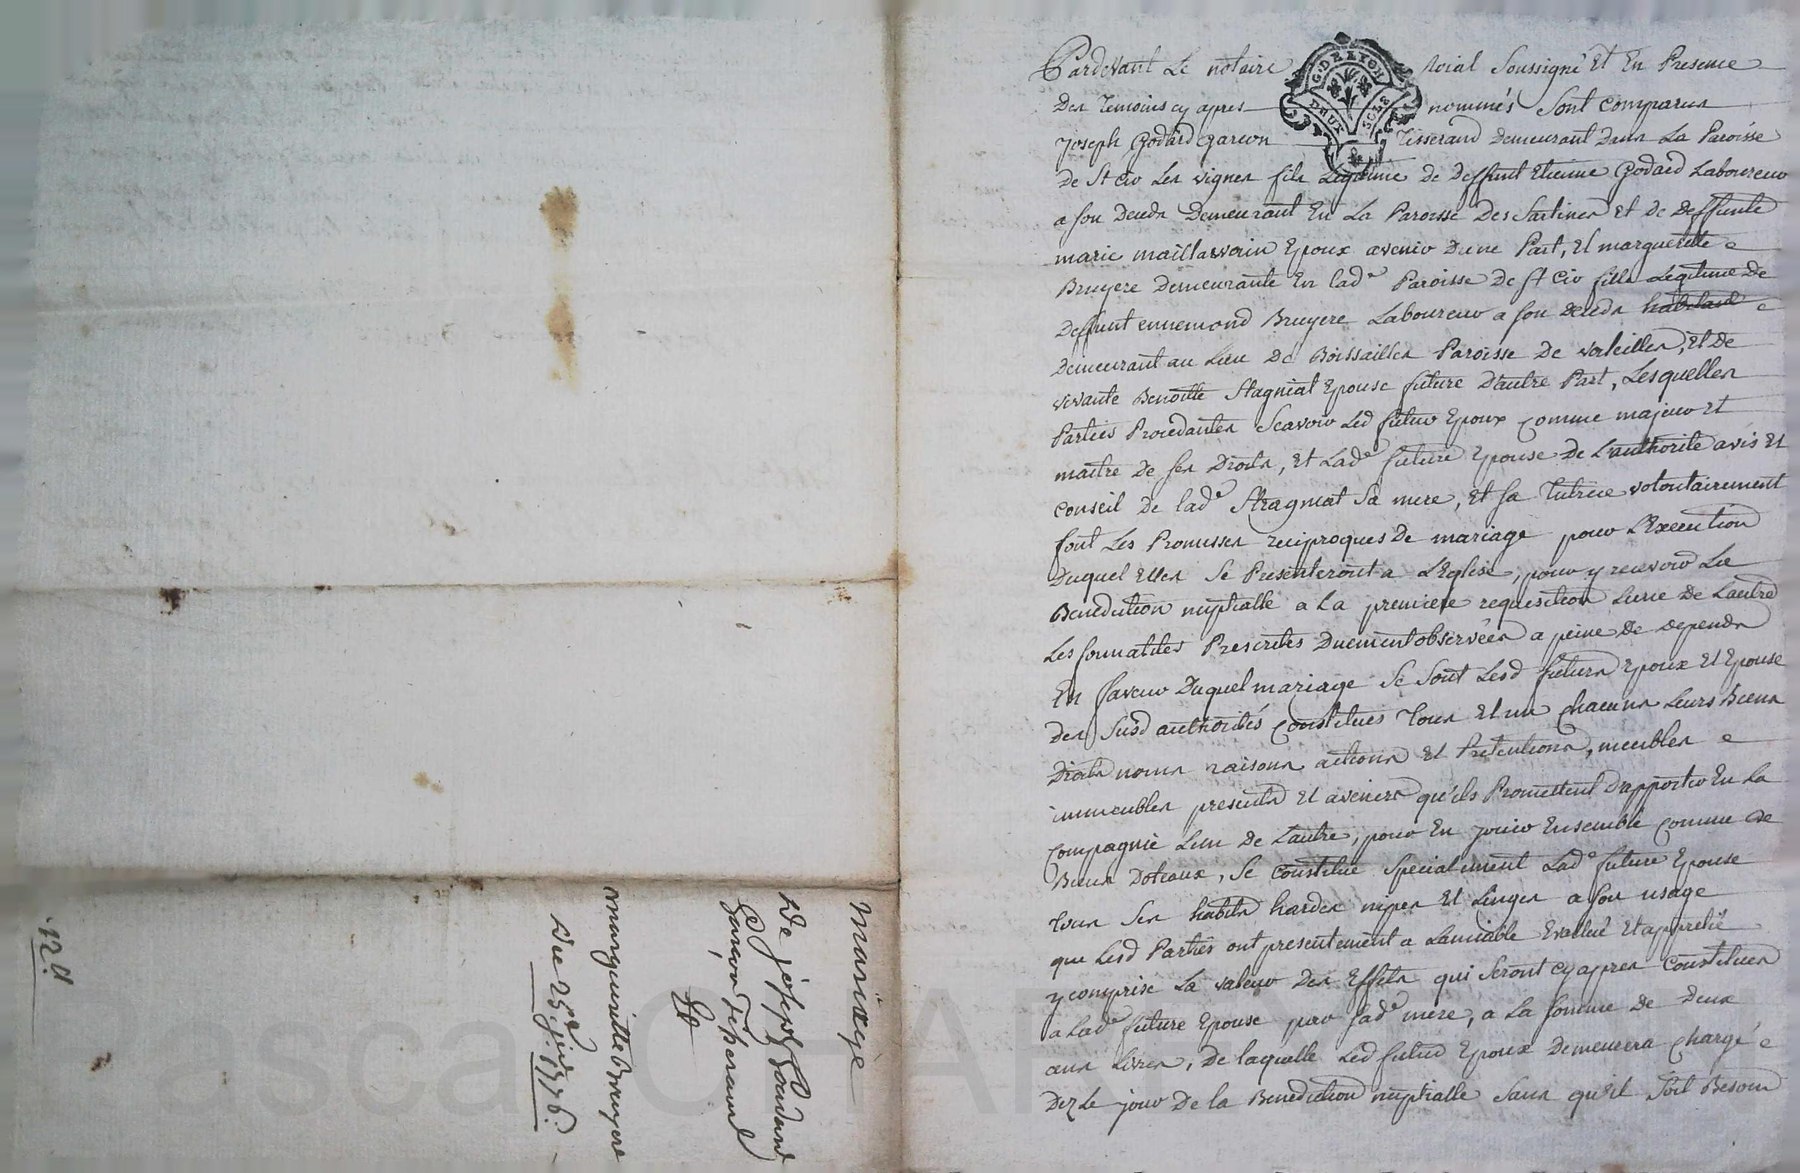 Mariage
De joseph Godard
garçon Tisserand
Et
margueritte bruyere
Du 25e juin 1776.
12d
G. DE LYON
DEUX SOLS
Pardevant Le notaire Roial Soussigné Et En Presence
Des Temoins cy apres nommés Sont comparus
joseph Godard Garcon Tisserand Demeurant Dans La Paroisse
De St Cir Les vignes fils Legitime de Deffunt Etienne Godard Laboureur
a son Deceds Demeurant En La Paroisse Des Salt En et de deffunte
marie maillavoin Epoux avenir Dune Part, Et marguerite
Bruyere Demeurante En lade Paroisse De St Cir fille Legitime De
Deffunt ennemond Bruyere Laboureur a son deceds habitant
Demeurant au Lieu De Boissailles Paroisse de valeilles, Et de
vivante Benoitte Stagniat Epouse future D'autre Part, Lesquelles
Parties Procedantes Scavoir Led futur Epoux comme majeur Et
maitre de ses Droits, Et Lade future Epouse De L'authorité avis Et
conseil De lade Stragniat Sa mere, Et sa Tutrice volontairement
font Les Promesses reciproques De mariage pour L'Execution
Duquel Elles Se Presenteront a L'Eglise, pour y recevoir La
Benediction nuptialle a La premiere requisition Lune De Lautre
Les formalites Prescrites Duement observées a peine De depends
En faveur Duquel mariage Se Sont Lesd futurs Epoux Et Epouse
Des Susd authorités Constitués Tous Et un chacuns Leurs Biens
Droits noms raisons actions Et Pretentions, meubles
immeubles presents Et avenirs qu'ils Promettent D'apporter En La
compagnie Lun De Lautre, pour En jouir Ensemble comme De
Biens Dotaux, Se Constitue Specialement Lade future Epouse
Tous Ses habits hardes nipes Et Linges a son usage
que Lesd Parties ont presentement a Lamiable Evallué Et apprétié
y comprise La valeur Des Effets qui Seront cy apres Constitués
a Lade future Epouse par sade mere, a La somme De Deux
cens Livres, De laquelle Led futur Epoux Demeurera chargé
Dez Le jour De la Benediction nuptialle Sans qu'il Soit Besoin